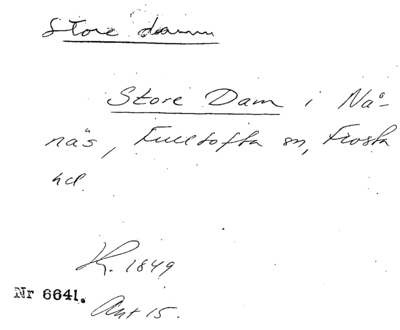 Store damm
Store Dam i Nå-
näs, Fulltofta sn, Frosta
hd.
K. 1849
Nr 6641.
Ant 15.